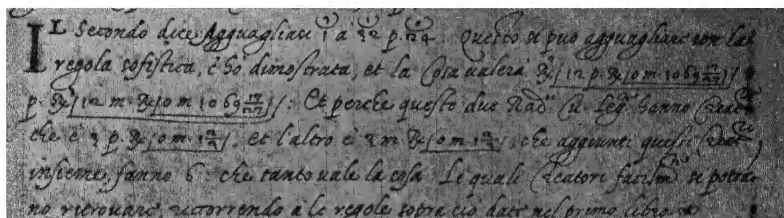 IL Secondo dice Agguaglisi 1³ a 32¹ p. 24. Questo si puo agguagliare con la
regola sofistica, c'hò dimostrata, et la Cosa valerà ℞⌊12 p. ℞⌊0 m 1069 17/27⌋⌋
p. ℞⌊12 m. ℞⌊0 m 1069 17/27⌋⌋. Et perche queste due Rad. cu. leg. hanno Creat.re
che è 3 p. ℞⌊0 m. 1 2/3⌋. et l'altro è 3 m ℞⌊0 m. 1 2/3⌋. che aggiunti questi Creat.ri
insieme fanno 6. che tanto vale la cosa. Le quali Creatori facilm.te si potra-
no ritrovare ricorrendo a le regole sopra ciò date nel primo libro.